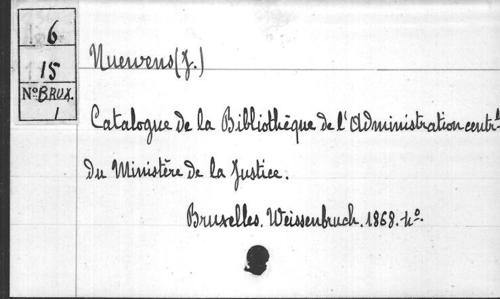 6
15
Nº BRUX.
1
Nuewens (J.)
Catalogue de la Bibliothèque de l'Administration centrle
du Ministère de la Justice.
Bruxelles. Weissenbruch. 1868. 4º.